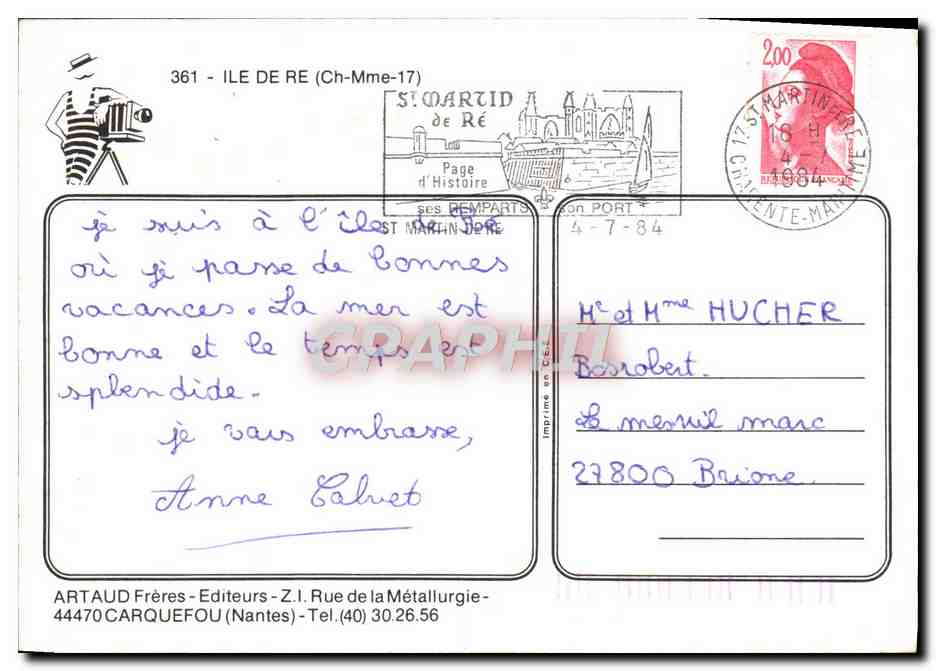 361 - ILE DE RE (Ch-Mme-17)
St MARTIN
de Ré
Page
d'Histoire
ses REMPARTS son PORT
ST MARTIN DE RE
4-7-84
2,00
REPUBLIQUE FRANÇAISE
17 ST MARTIN-DE-RE
18 H
4-7
1984
CHARENTE-MARITIME
je suis à l'île de Ré
où je passe de bonnes
vacances. La mer est
bonne et le temps est
splendide.
je vais embrasse,
Anne Calvet
CPAPHIL
Imprimé en C.E.E.
Mr et Mme HUCHER
Bosrobert.
Le mesnil marc
27800 Brione.
ARTAUD Frères - Editeurs - Z.I. Rue de la Métallurgie -
44470 CARQUEFOU (Nantes) - Tel. (40) 30.26.56